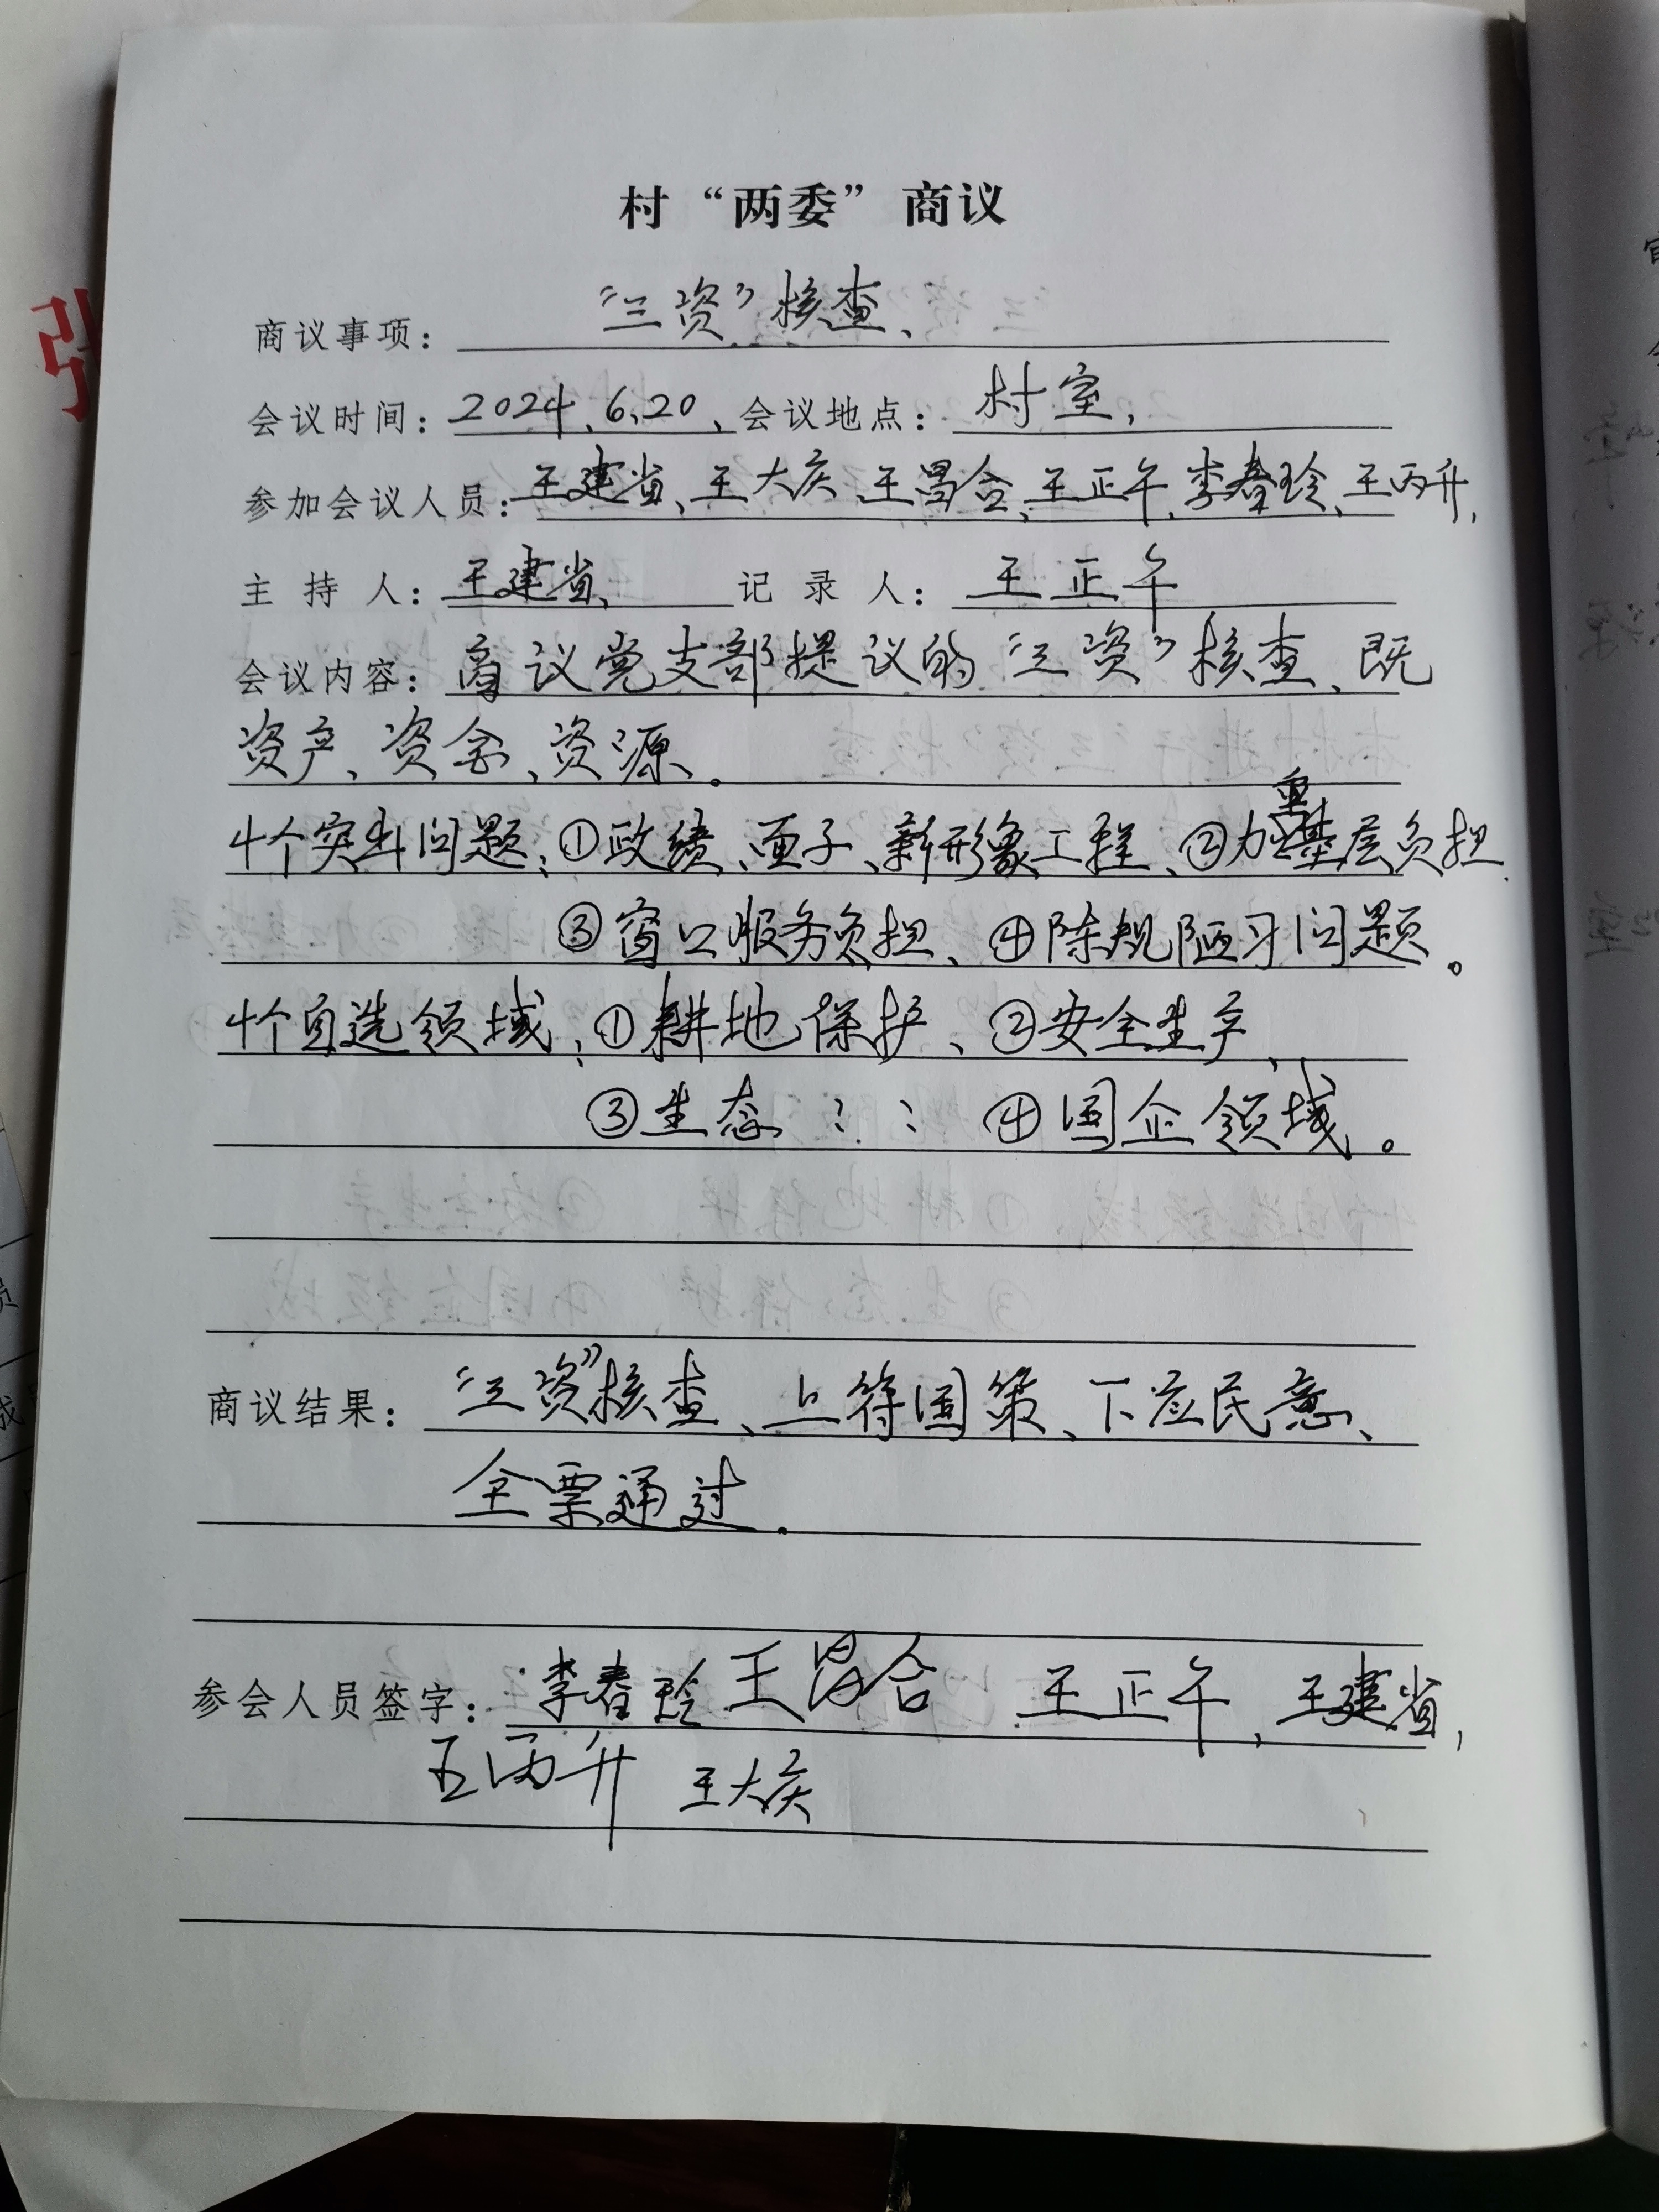 村“两委”商议
商议事项：“三资”核查、
会议时间：2024.6.20、会议地点：村室，
参加会议人员：王建省、王大庆、王昌合、王正午、李春玲、王丙升，
主持人：王建省、记录人：王正午
会议内容：商议党支部提议的“三资”核查、既
资产、资金、资源。
4个突出问题：①政绩、面子、新形象工程、②加重基层负担
③窗口服务负担、④陈规陋习问题。
4个自选领域：①耕地保护、②安全生产、
③生态：：④国企领域。
商议结果：“三资”核查、上符国策、下应民意、
全票通过.
参会人员签字：李春玲 王昌合 王正午，王建省，
王丙升 王大庆